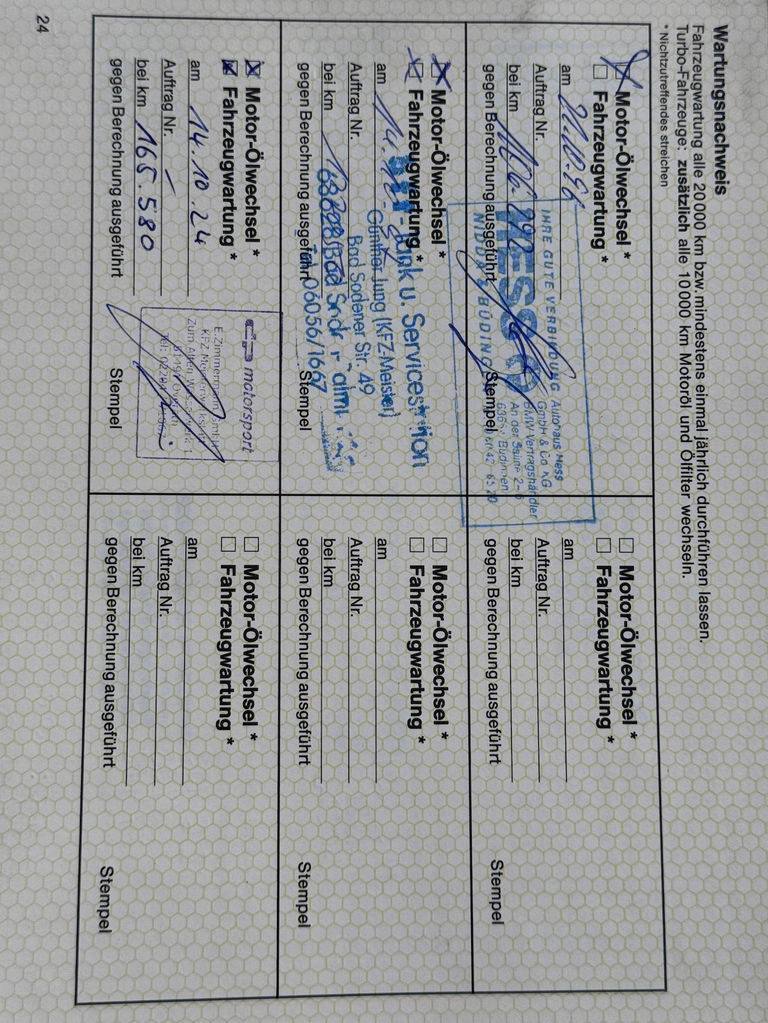 Wartungsnachweis
Fahrzeugwartung alle 20 000 km bzw. mindestens einmal jährlich durchführen lassen.
Turbo-Fahrzeuge: zusätzlich alle 10 000 km Motoröl und Ölfilter wechseln.
* Nichtzutreffendes streichen
Motor-Ölwechsel *
Fahrzeugwartung *
am
Auftrag Nr.
bei km
gegen Berechnung ausgeführt
Stempel
IHRE GUTE VERBINDUNG
HESS
NIDDA BÜDINGEN
Autohaus Hess
GmbH & Co KG
BMW-Vertragshändler
An der Saline 2-6
Büdingen
Motor-Ölwechsel *
Fahrzeugwartung *
am
Auftrag Nr.
bei km
gegen Berechnung ausgeführt
Stempel
Motor-Ölwechsel *
Fahrzeugwartung *
am
Auftrag Nr.
bei km
gegen Berechnung ausgeführt
Stempel
Tank u. Servicestation
Günther Jung (KFZ-Meister)
Bad Sodener Str. 49
63628 Bad
Tel. 06056/1667
Motor-Ölwechsel *
Fahrzeugwartung *
am
Auftrag Nr.
bei km
gegen Berechnung ausgeführt
Stempel
Motor-Ölwechsel *
Fahrzeugwartung *
am 14.10.24
Auftrag Nr. –
bei km 165.580
gegen Berechnung ausgeführt
Stempel
motorsport
E. Zimmermann GmbH
Motor-Ölwechsel *
Fahrzeugwartung *
am
Auftrag Nr.
bei km
gegen Berechnung ausgeführt
Stempel
24